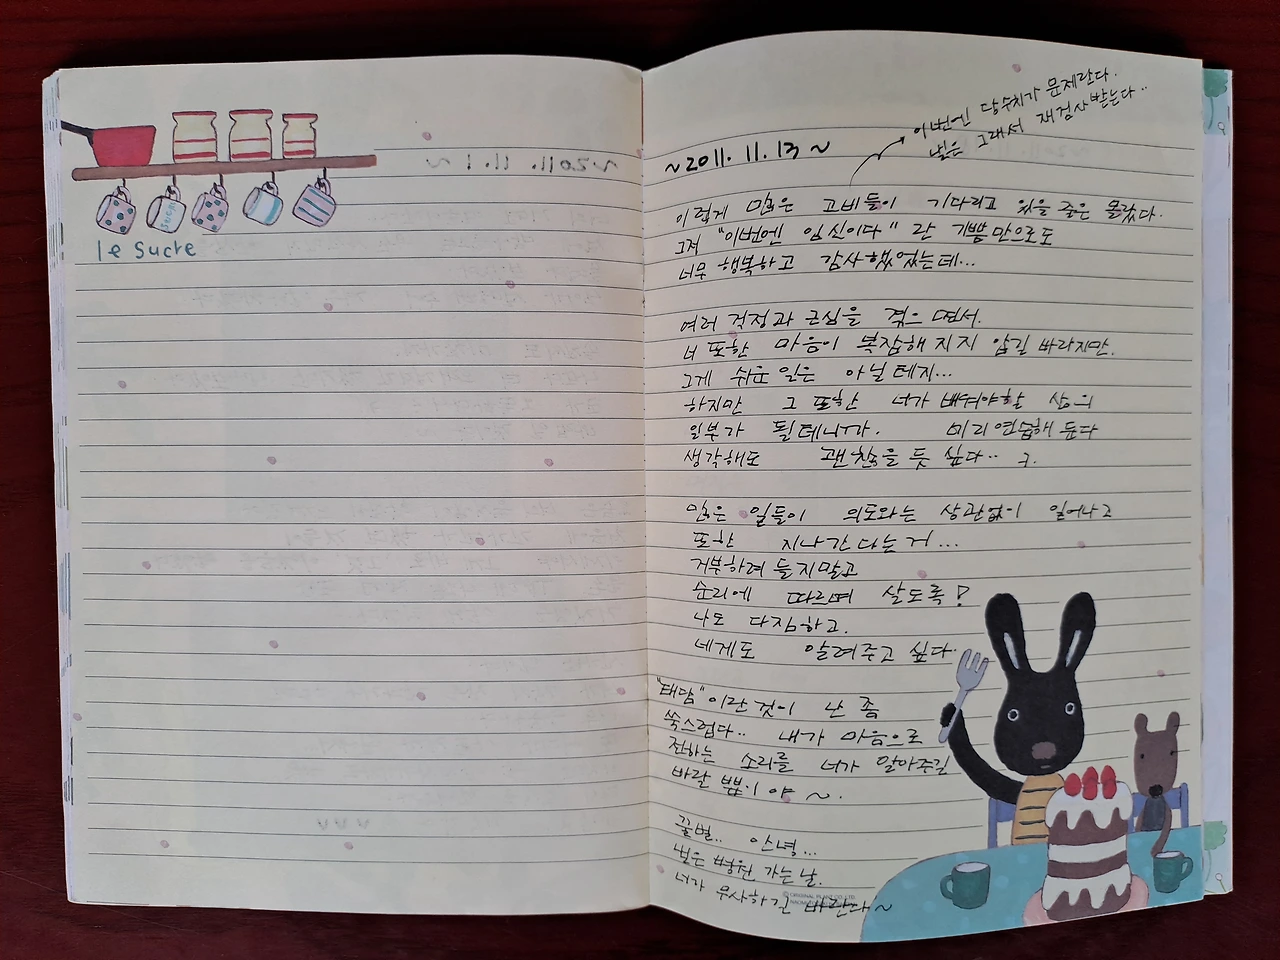 le sucre
~2011. 11. 13 ~
이번엔 당수치가 문제란다.
낼은 그래서 재검사 받는다..
이렇게 많은 고비들이 기다리고 있을 줄은 몰랐다.
그저 "이번엔 임신이다" 란 기쁨만으로도
너무 행복하고 감사했었는데...
여러 걱정과 근심을 겪으면서.
너 또한 마음이 복잡해지지 않길 바라지만.
그게 쉬운 일은 아닐테지...
하지만 그 또한 너가 배워야할 삶의
일부가 될테니까. 미리 연습해 둔다
생각해도 괜찮을 듯 싶다.. 구.
많은 일들이 의도와는 상관없이 일어나고
또한 지나간다는거...
거부하려 들지말고
순리에 따르며 살도록!
나도 다짐하고.
네게도 알려주고 싶다.
"태담"이란것이 난 좀
쑥스럽다.. 내가 마음으로
전하는 소리를 너가 알아주길
바랄 뿐이야 ~.
꿀벌.. 안녕...
낼은 병원 가는 날.
너가 무사하길 바란다~